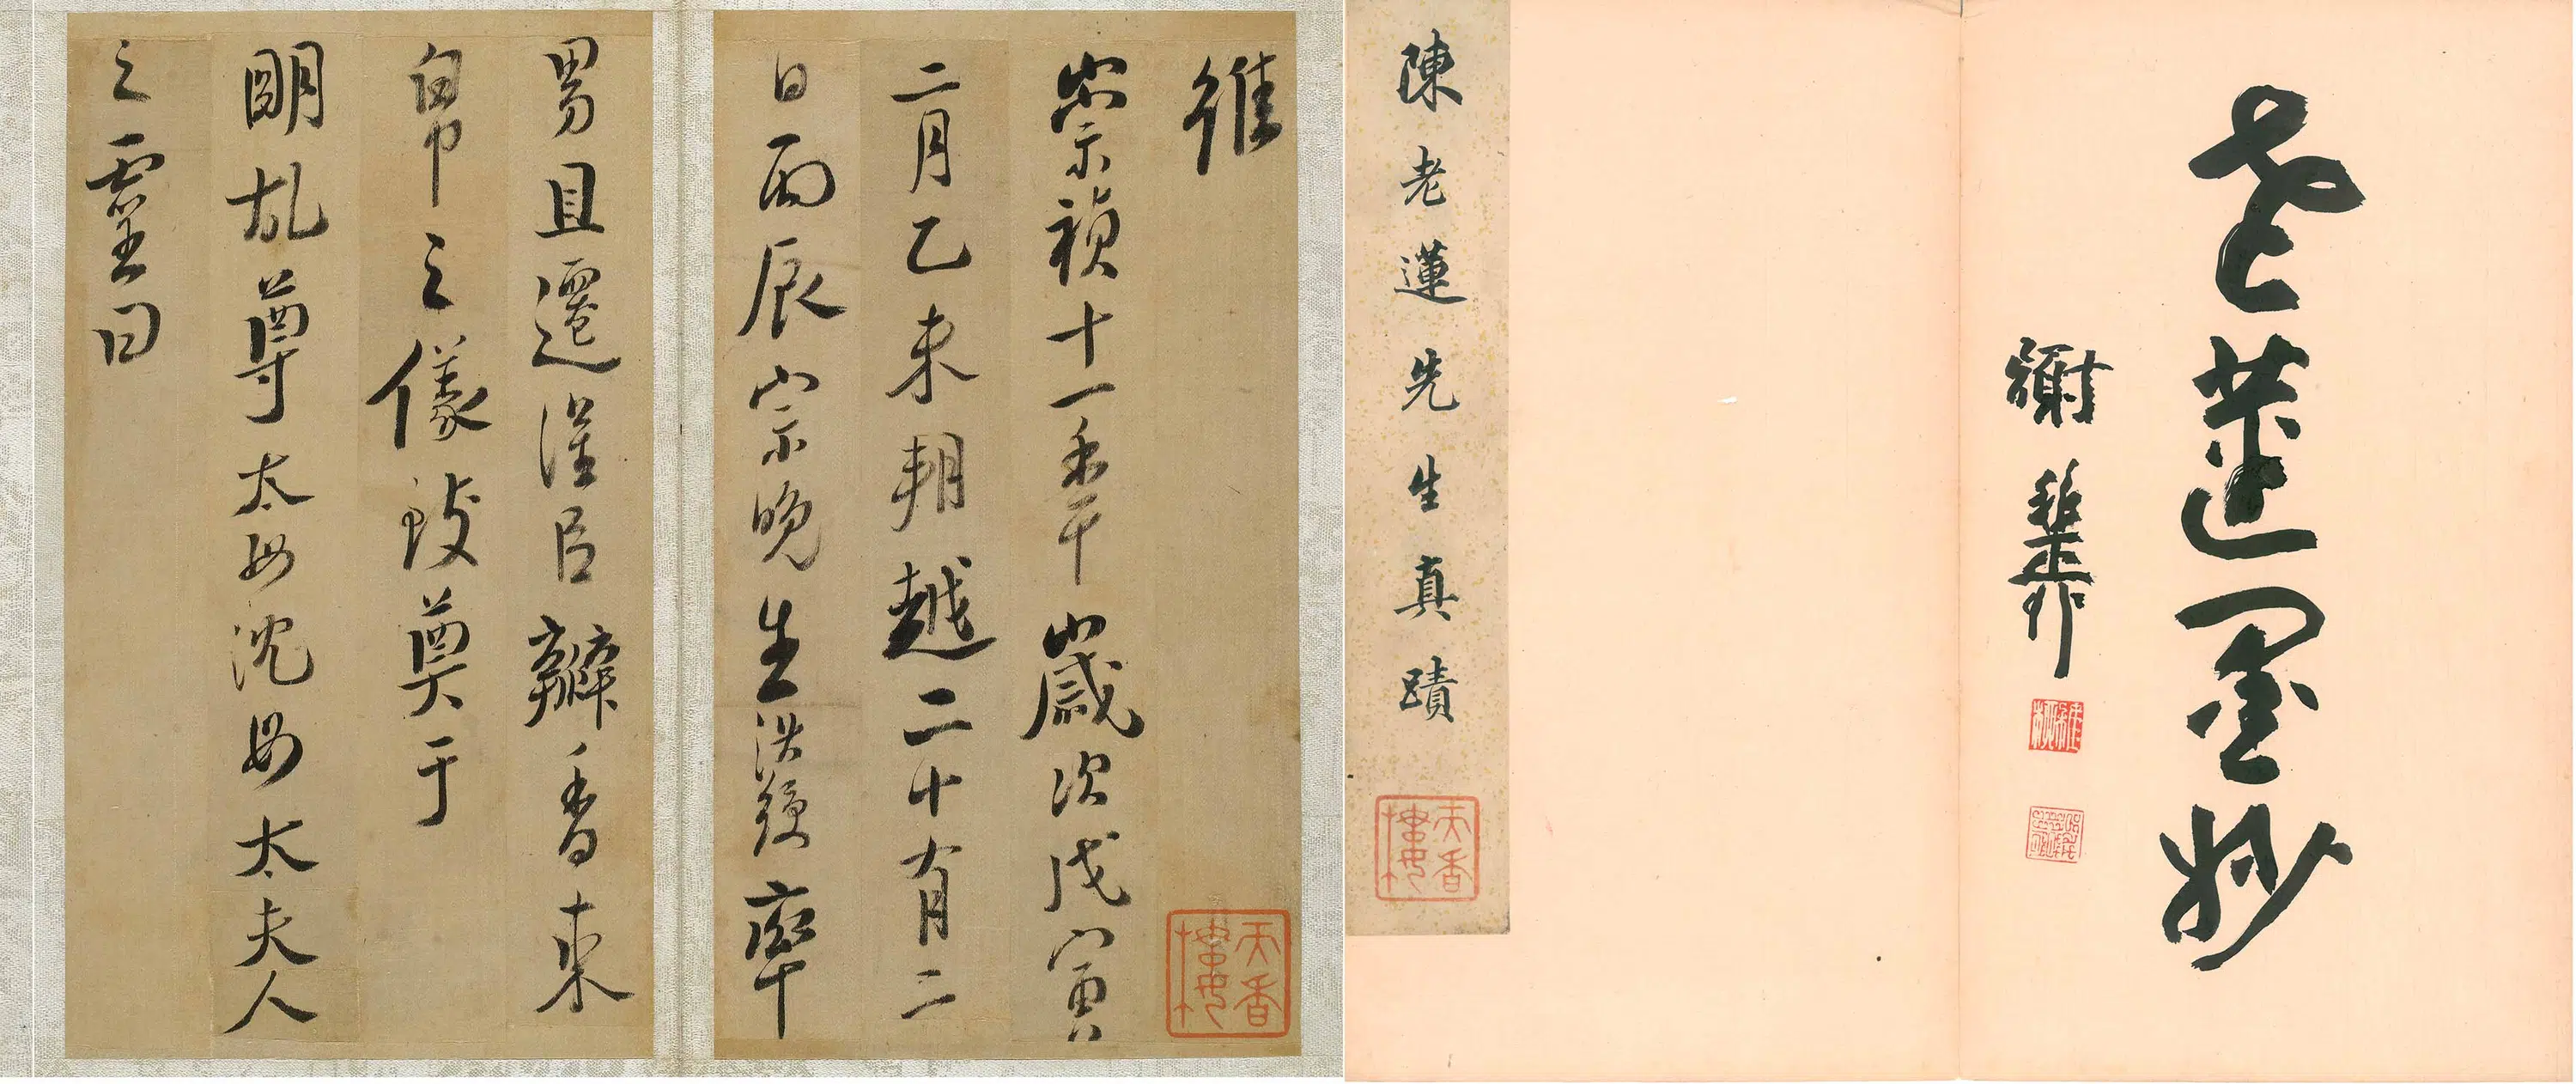 老蓮墨妙
謝稚柳
陳老蓮先生真蹟
天香樓
維
崇禎十一年歲次戊寅
二月乙未朔越二十有二
日丙辰宗晚生洪綬率
天香樓
男且遷謹臣辦香束
帛之儀致奠于
明故尊太母沈母太夫人
之靈曰